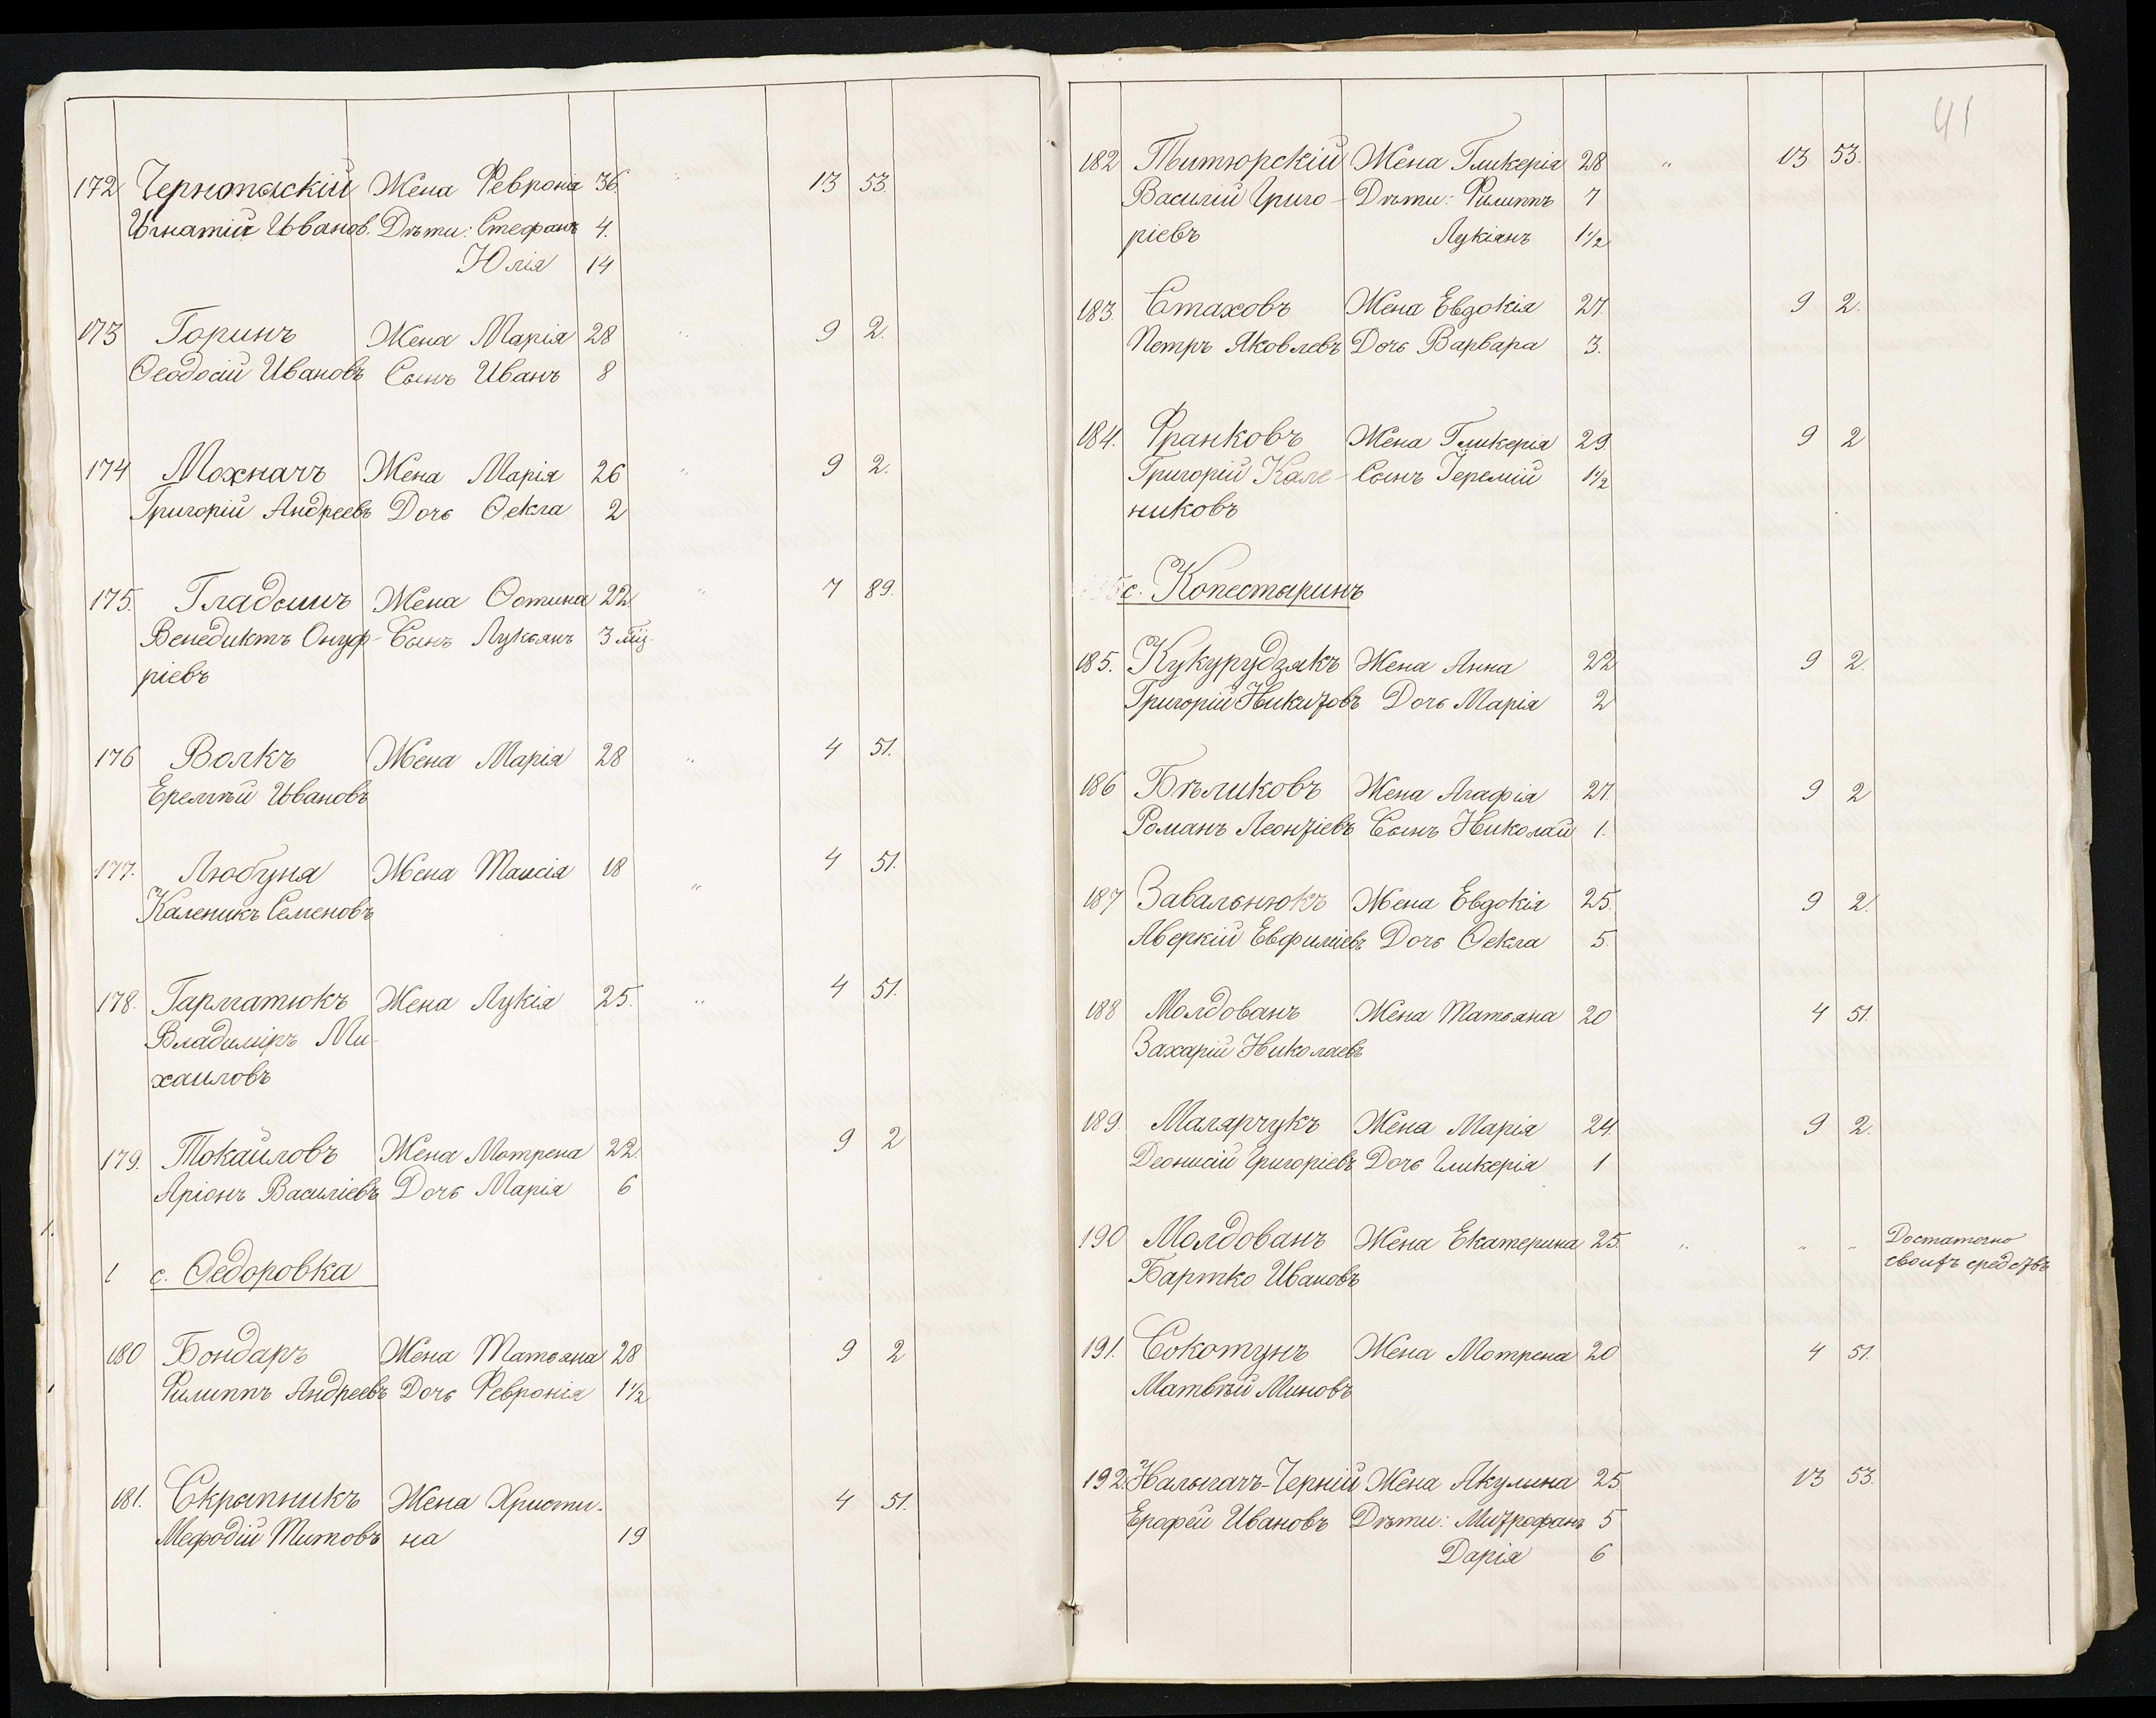 172 Чернопыскій Жена Февронія 36 " 13 53.
Игнатій Иванов. Дѣти: Стефанъ 4.
Юлія 14
173 Горинъ Жена Марія 28 " 9 2.
Ѳеодосій Ивановъ Сынъ Иванъ 8
174 Мохначъ Жена Марія 26 " 9 2.
Григорій Андреевъ Дочь Ѳекла 2
175. Гладышъ Жена Устина 22 " 7 89.
Венедиктъ Онуф- Сынъ Лукьянъ 3 мѣц.
ріевъ
176 Волкъ Жена Марія 28 " 4 51.
Еремѣй Ивановъ
177. Любуня Жена Таисія 18 " 4 51.
Каленикъ Семеновъ
178. Гарматюкъ Жена Лукія 25. " 4 51.
Владиміръ Ми-
хаиловъ
179. Токаиловъ Жена Мотрена 22 9 2
Аріонъ Василіевъ Дочь Марія 6
с. Ѳедоровка
180 Бондаръ Жена Татьяна 28 9 2
Филиппъ Андреевъ Дочь Февронія 1 1/2
181. Скрыпникъ Жена Христи- 4 51.
Мефодій Титовъ на 19
41
182 Питюрскій Жена Гликерія 28 " 13 53.
Василій Григо- Дѣти: Филиппъ 7
ріевъ Лукіянъ 1 1/2
183. Стаховъ Жена Евдокія 27. 9 2.
Петръ Яковлевъ Дочь Варвара 3.
184. Франковъ Жена Гликерія 29 9 2
Григорій Кале- Сынъ Іеремій 1 1/2
никовъ
с. Копестыринъ
185. Кукурудзякъ Жена Анна 22 9 2.
Григорій Никитовъ Дочь Марія 2
186 Бѣликовъ Жена Агафія 27. 9 2
Романъ Леонтіевъ Сынъ Николай 1.
187 Завальнюкъ Жена Евдокія 25. 9 2.
Аверкій Евфиміевъ Дочь Ѳекла 5.
188 Молдованъ Жена Татьяна 20 4 51
Захарій Николаевъ
189. Малярчукъ Жена Марія 24. 9 2.
Деонисій Григоріевъ Дочь Гликерія 1
190 Молдованъ Жена Екатерина 25. " " " Достаточно
Бартко Ивановъ своихъ средствъ
191. Сокотунъ Жена Мотрена 20 4 51.
Матвѣй Миновъ
192. Налыгачъ-Черній Жена Акулина 25. 13 53.
Ерофей Ивановъ Дѣти: Митрофанъ 5
Дарія 6